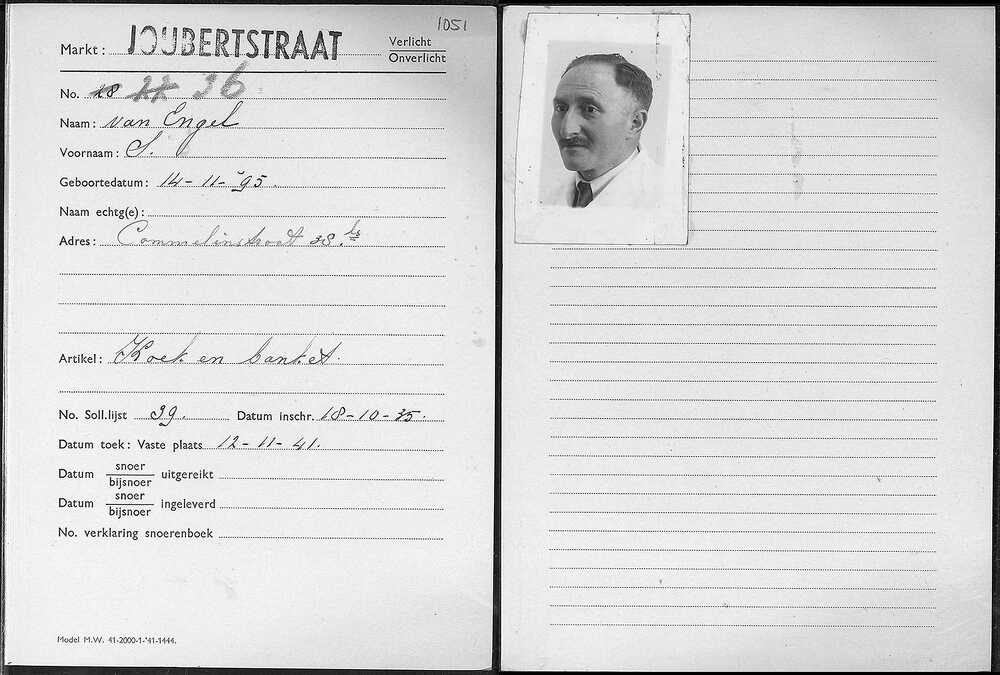 1051
Markt: JOUBERTSTRAAT Verlicht
Onverlicht
No. 18 22 36
Naam: van Engel
Voornaam: S.
Geboortedatum: 14-11-'95.
Naam echtg(e):
Adres: Commelinstraat 38 hs
Artikel: Koek en banket.
No. Soll.lijst 39. Datum inschr. 18-10-35.
Datum toek: Vaste plaats 12-11-41.
Datum snoer
bijsnoer uitgereikt
Datum snoer
bijsnoer ingeleverd
No. verklaring snoerenboek
Model M.W. 41-2000-1-'41-1444.